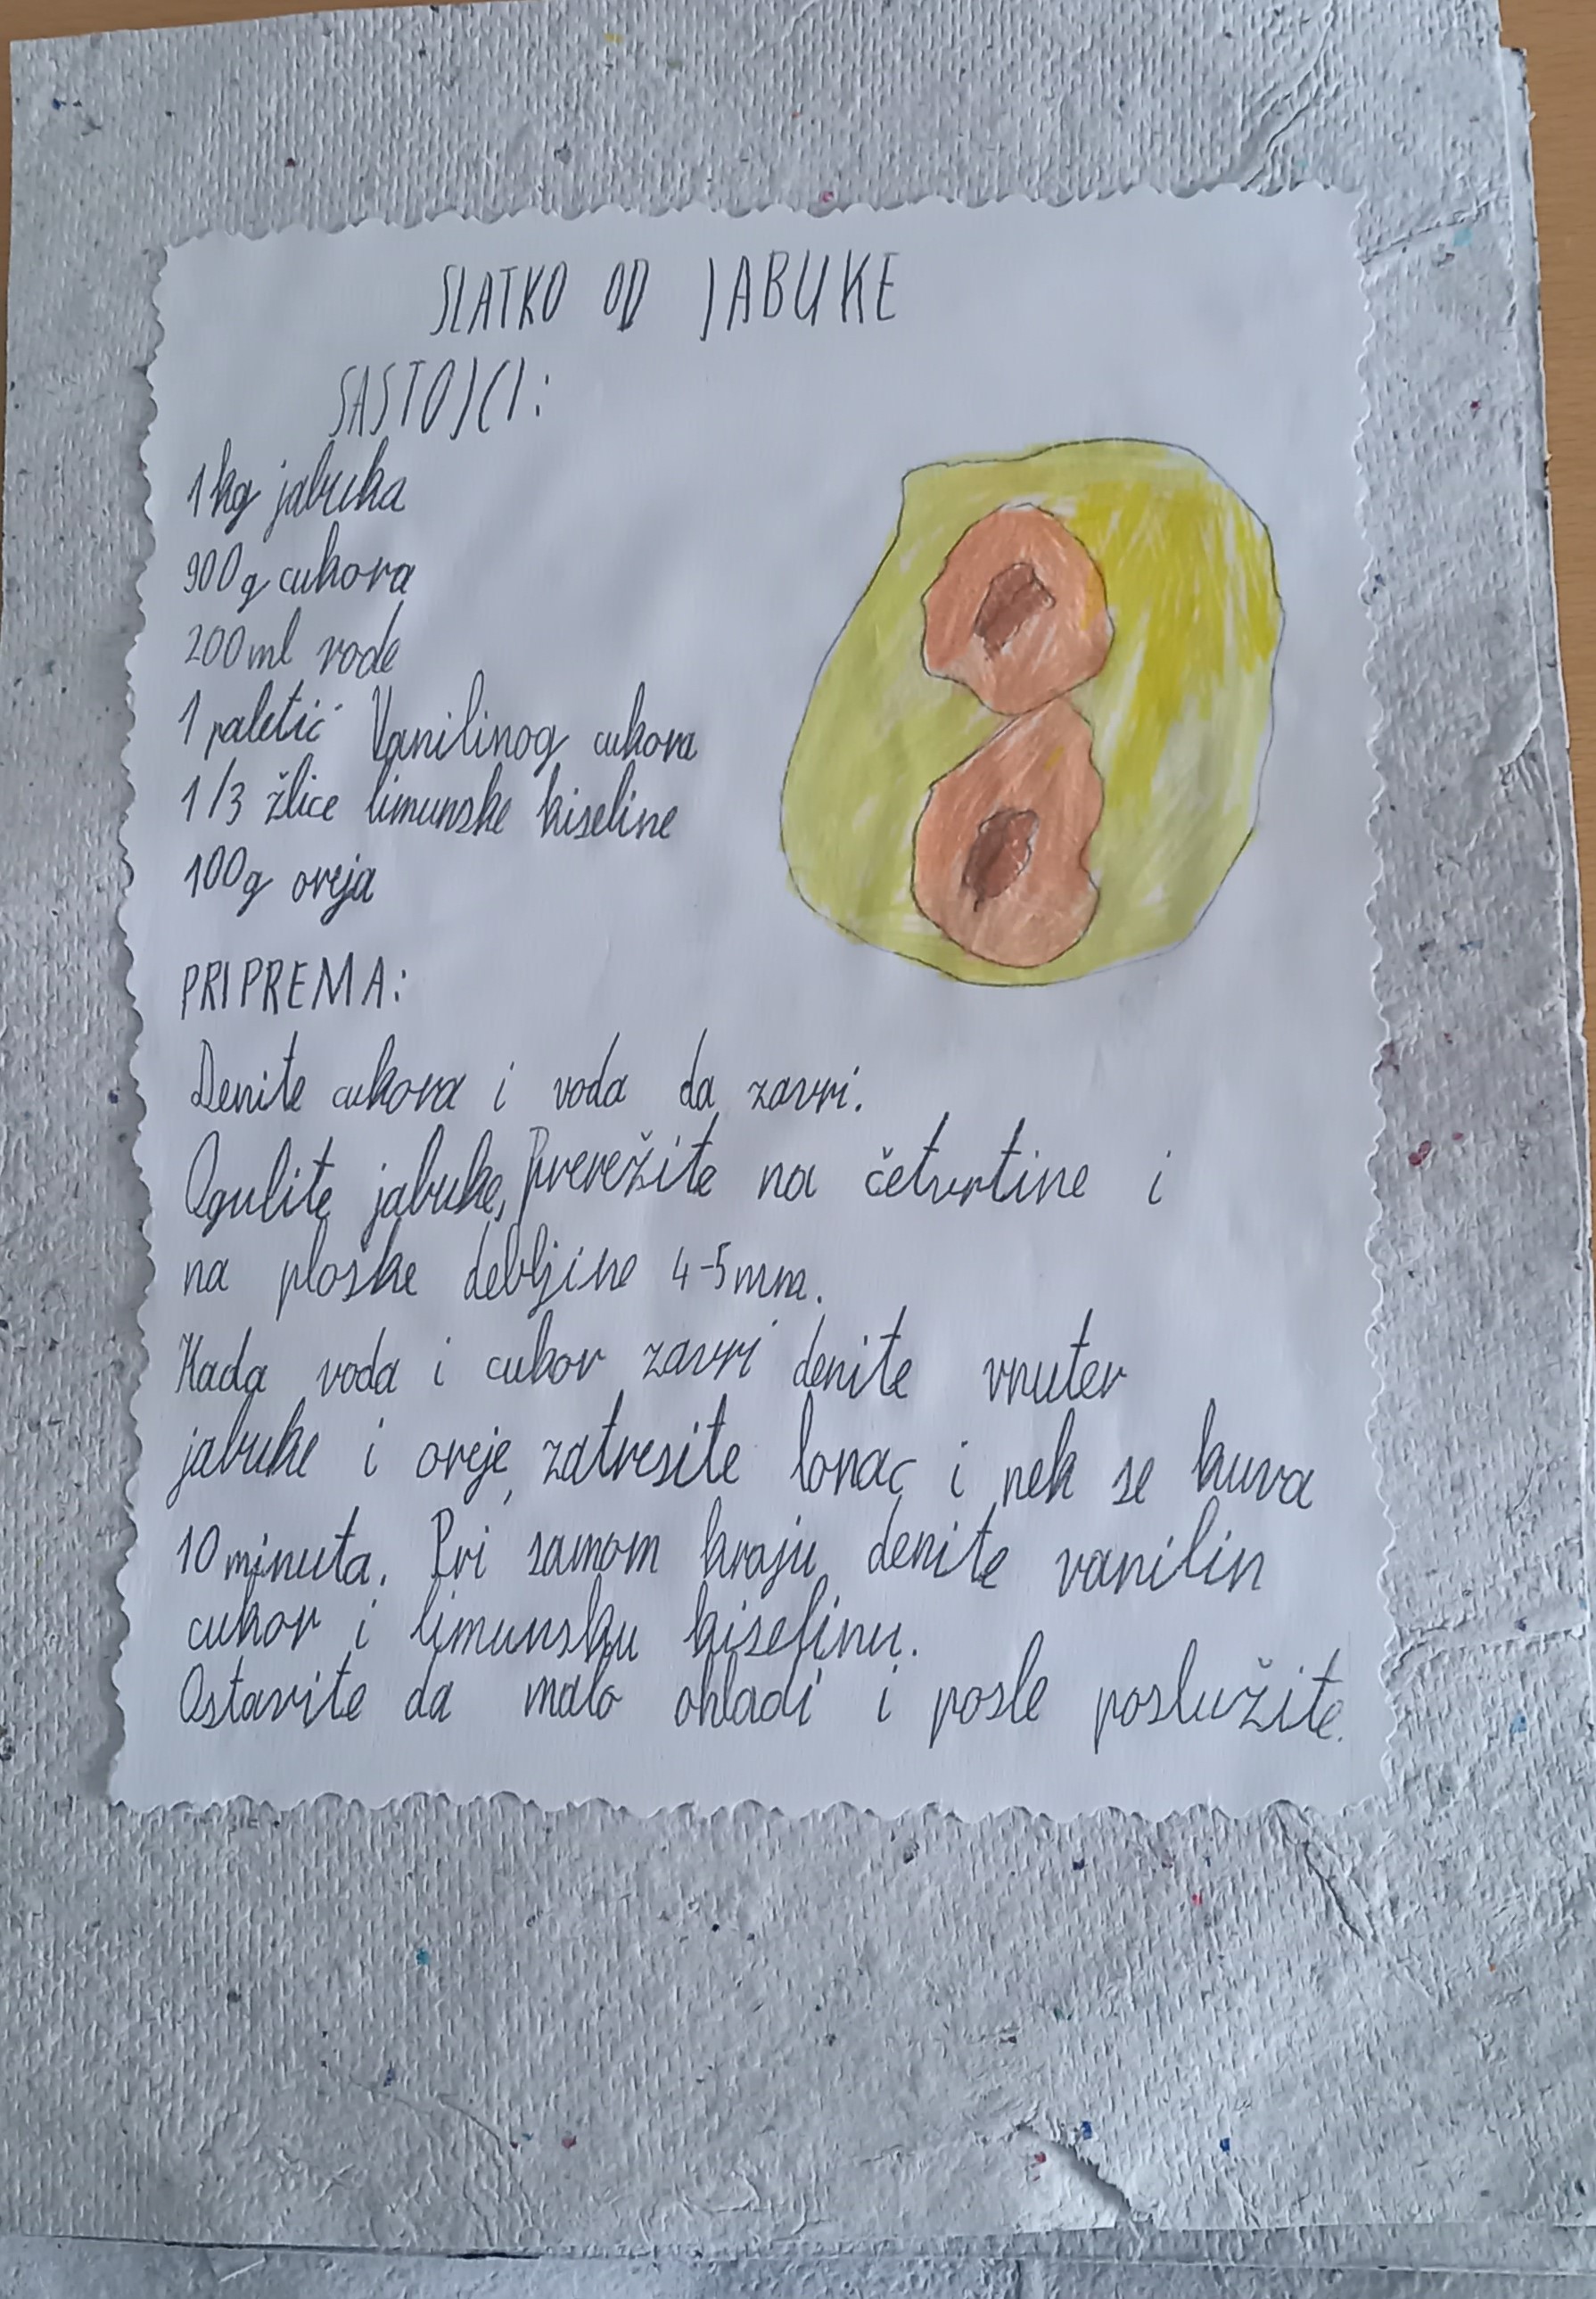 SLATKO OD JABUKE
SASTOJCI:
1kg jabuka
900g cukora
200ml vode
1 paletić Vanilinog cukora
1/3 žlice limunske kiseline
100g oreja
PRIPREMA:
Denite cukora i voda da zavri.
Ogulite jabuke, prerežite na četvrtine i
na ploške debljine 4-5mm.
Kada voda i cukor zavri denite vnuter
jabuke i oreje, zatresite lonac i nek se kuva
10 minuta. Pri samom kraju denite vanilin
cukor i limunsku kiselinu.
Ostavite da malo ohladi i posle poslužite.